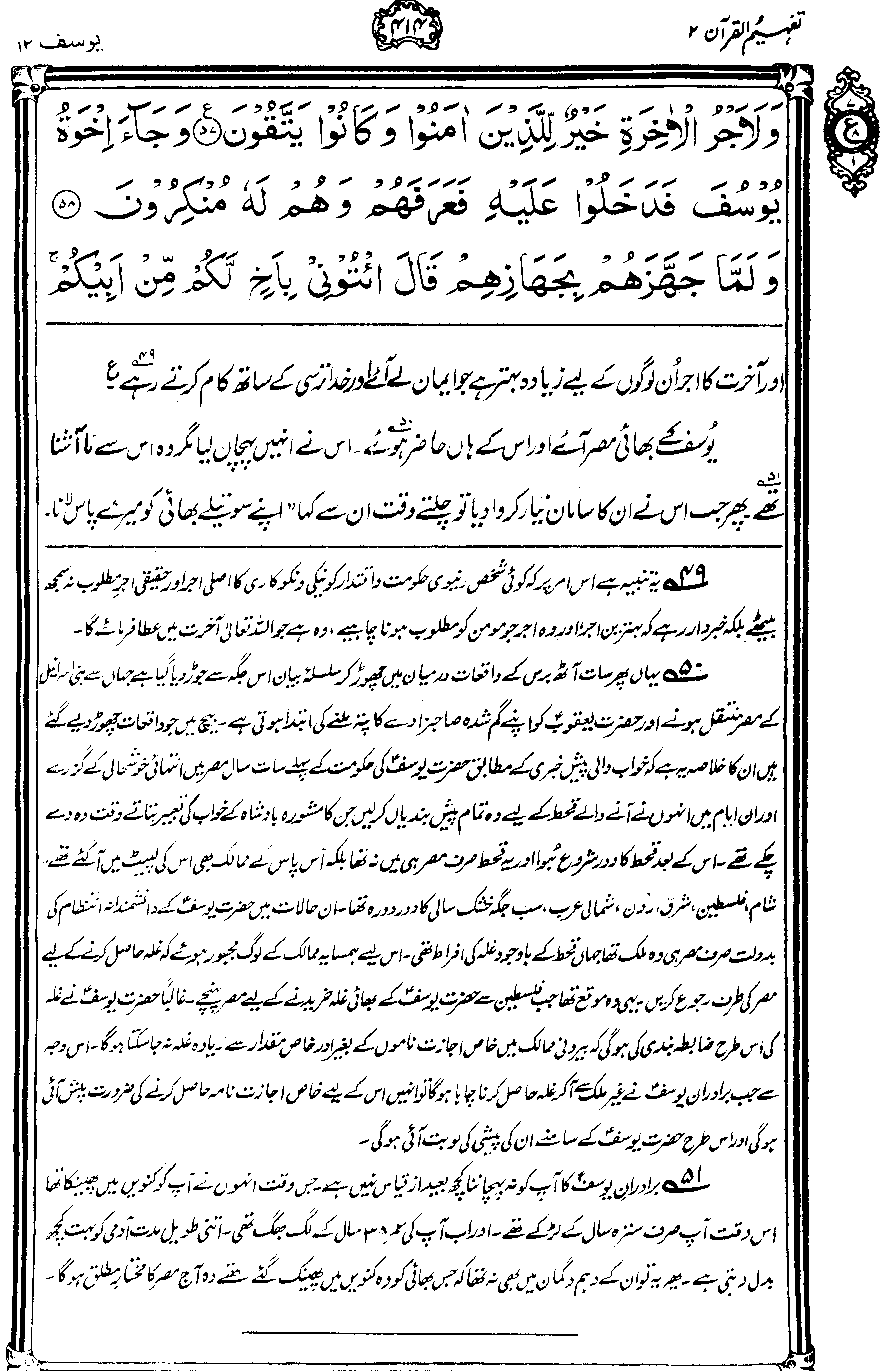 تفہیم القرآن ۲
۴۱۴
یوسف ۱۲
وَلَاَجْرُ الْاٰخِرَةِ خَيْرٌ لِّلَّذِيْنَ اٰمَنُوْا وَكَانُوْا يَتَّقُوْنَ ﴿۵۷﴾ وَجَآءَ اِخْوَةُ
يُوْسُفَ فَدَخَلُوْا عَلَيْهِ فَعَرَفَهُمْ وَهُمْ لَهٗ مُنْكِرُوْنَ ﴿۵۸﴾
وَلَمَّا جَهَّزَهُمْ بِجَهَازِهِمْ قَالَ ائْتُوْنِيْ بِاَخٍ لَّكُمْ مِّنْ اَبِيْكُمْ ۚ
اور آخرت کا اجر اُن لوگوں کے لیے زیادہ بہتر ہے جو ایمان لے آئے اور خدا ترسی کے ساتھ کام کرتے رہے ۴۹ ع
یُوسفؑ کے بھائی مصر آئے اور اس کے ہاں حاضر ہوئے ۵۰۔ اس نے انہیں پہچان لیا مگر وہ اس سے نا آشنا
تھے ۵۱۔ پھر جب اس نے ان کا سامان تیار کروا دیا تو چلتے وقت ان سے کہا "اپنے سوتیلے بھائی کو میرے پاس لانا۔
۴۹ یہ تنبیہ ہے اس امر پر کہ کوئی شخص دنیوی حکومت و اقتدار کو نیکی و نکوکاری کا اصلی اجر اور حقیقی اجر مطلوب نہ سمجھ
بیٹھے بلکہ خبردار رہے کہ بہترین اجر، اور وہ اجر جو مومن کو مطلوب ہونا چاہیے، وہ ہے جو اللہ تعالیٰ آخرت میں عطا فرمائے گا۔
۵۰ یہاں پھر سات آٹھ برس کے واقعات درمیان میں چھوڑ کر سلسلۂ بیان اس جگہ سے جوڑ دیا گیا ہے جہاں سے بنی اسرائیل
کے مصر منتقل ہونے اور حضرت یعقوبؑ کو اپنے گم شدہ صاحبزادے کا پتہ ملنے کی ابتدا ہوتی ہے۔ بیچ میں جو واقعات چھوڑ دیے گئے
ہیں ان کا خلاصہ یہ ہے کہ خواب والی پیش خبری کے مطابق حضرت یوسفؑ کی حکومت کے پہلے سات سال مصر میں انتہائی خوشحالی کے گزرے
اور ان ایام میں انہوں نے آنے والے قحط کے لیے وہ تمام پیش بندیاں کرلیں جن کا مشورہ بادشاہ کے خواب کی تعبیر بتاتے وقت وہ دے
چکے تھے۔ اس کے بعد قحط کا دور شروع ہوا اور یہ قحط صرف مصر ہی میں نہ تھا بلکہ آس پاس کے ممالک بھی اس کی لپیٹ میں آگئے تھے۔
شام، فلسطین، شرق اردن، شمالی عرب، سب جگہ خشک سالی کا دور دورہ تھا۔ ان حالات میں حضرت یوسفؑ کے دانشمندانہ انتظام کی
بدولت صرف مصر ہی وہ ملک تھا جہاں قحط کے باوجود غلہ کی افراط تھی۔ اس لیے ہمسایہ ممالک کے لوگ مجبور ہوئے کہ غلہ حاصل کرنے کے لیے
مصر کی طرف رجوع کریں۔ یہی وہ موقع تھا جب فلسطین سے حضرت یوسفؑ کے بھائی غلہ خریدنے کے لیے مصر پہنچے۔ غالباً حضرت یوسفؑ نے غلہ
کی اس طرح ضابطہ بندی کی ہوگی کہ بیرونی ممالک میں خاص اجازت ناموں کے بغیر اور خاص مقدار سے زیادہ غلہ نہ جا سکتا ہوگا۔ اس وجہ
سے جب برادران یوسفؑ نے غیر ملک سے آکر غلہ حاصل کرنا چاہا ہوگا تو انہیں اس کے لیے خاص اجازت نامہ حاصل کرنے کی ضرورت پیش آئی
ہوگی اور اس طرح حضرت یوسفؑ کے سامنے ان کی پیشی کی نوبت آئی ہوگی۔
۵۱ برادرانِ یوسفؑ کا آپ کو نہ پہچاننا کچھ بعید از قیاس نہیں ہے۔ جس وقت انہوں نے آپ کو کنویں میں پھینکا تھا
اس وقت آپ صرف سترہ سال کے لڑکے تھے۔ اور اب آپ کی عمر ۳۸ سال کے لگ بھگ تھی۔ اتنی طویل مدت آدمی کو بہت کچھ
بدل دیتی ہے۔ پھر یہ تو ان کے وہم و گمان میں بھی نہ تھا کہ جس بھائی کو وہ کنویں میں پھینک گئے تھے وہ آج مصر کا مختار مطلق ہوگا۔